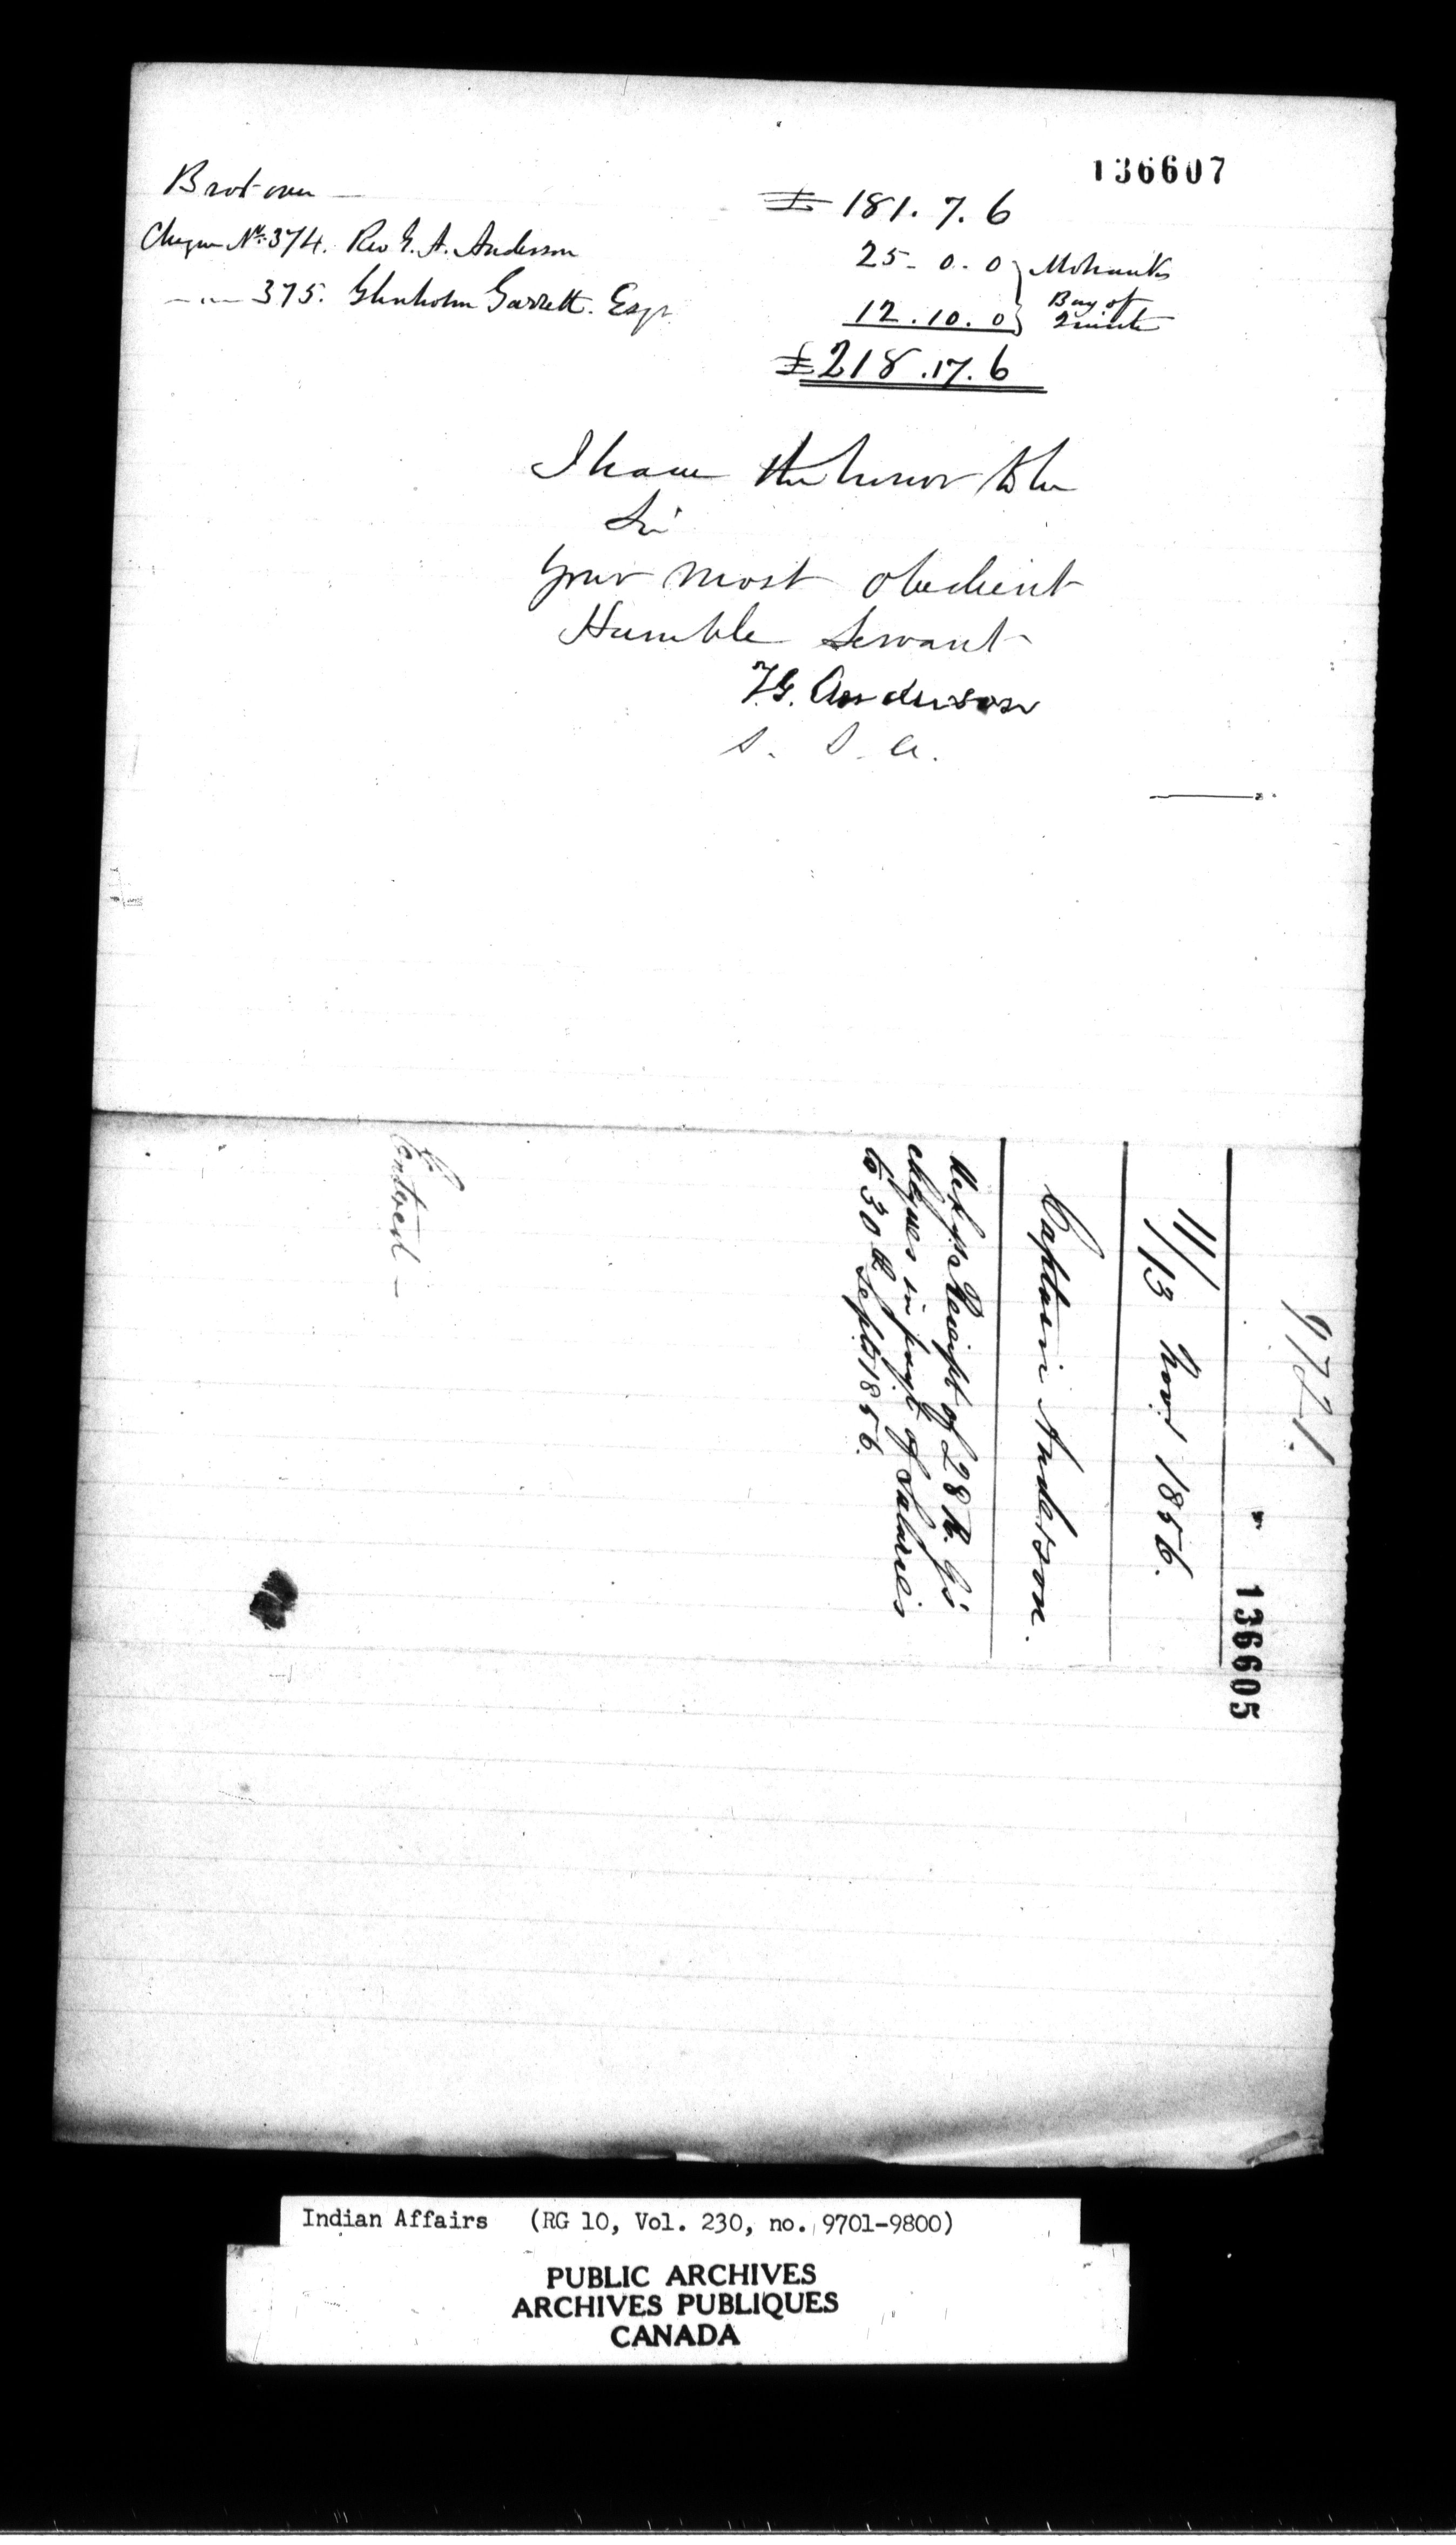 136607
Brot over — £ 181. 7. 6
Cheque No. 374. Rev G. A. Anderson 25. 0. 0 } Mohawks
— " — 375. Glenholm Garrett. Esqr. 12. 10. 0 } Bay of Quinte
£ 218. 17. 6
I have the honor to be
Sir
Your most obedient
Humble Servant
T.G. Anderson
S. I. A.
9721.
136605
11/13 Novr 1856.
Captain Anderson.
Receipt of 28
cheques in payt of Salaries
to 30th Septr 1856.
Entered —
Indian Affairs (RG 10, Vol. 230, no. 9701-9800)
PUBLIC ARCHIVES
ARCHIVES PUBLIQUES
CANADA